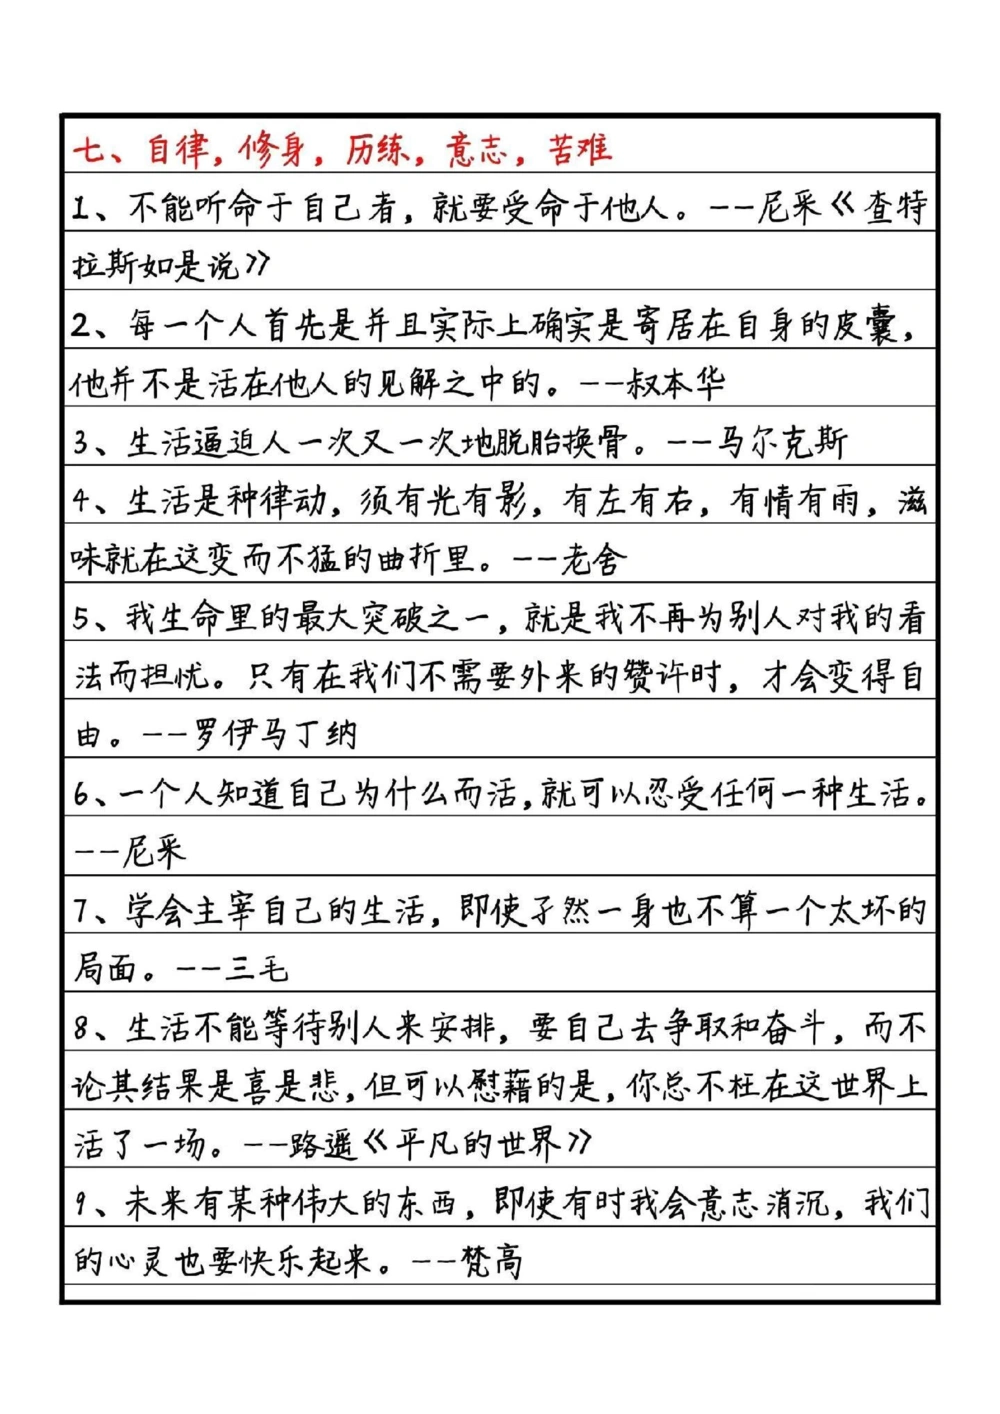 七、自律，修身，历练，意志，苦难
1、不能听命于自己者，就要受命于他人。--尼采《查特
拉斯如是说》
2、每一个人首先是并且实际上确实是寄居在自身的皮囊，
他并不是活在他人的见解之中的。--叔本华
3、生活逼迫人一次又一次地脱胎换骨。--马尔克斯
4、生活是种律动，须有光有影，有左有右，有情有雨，滋
味就在这变而不猛的曲折里。--老舍
5、我生命里的最大突破之一，就是我不再为别人对我的看
法而担忧。只有在我们不需要外来的赞许时，才会变得自
由。--罗伊马丁纳
6、一个人知道自己为什么而活，就可以忍受任何一种生活。
--尼采
7、学会主宰自己的生活，即使孑然一身也不算一个太坏的
局面。--三毛
8、生活不能等待别人来安排，要自己去争取和奋斗，而不
论其结果是喜是悲，但可以慰藉的是，你总不枉在这世界上
活了一场。--路遥《平凡的世界》
9、未来有某种伟大的东西，即使有时我会意志消沉，我们
的心灵也要快乐起来。--梵高